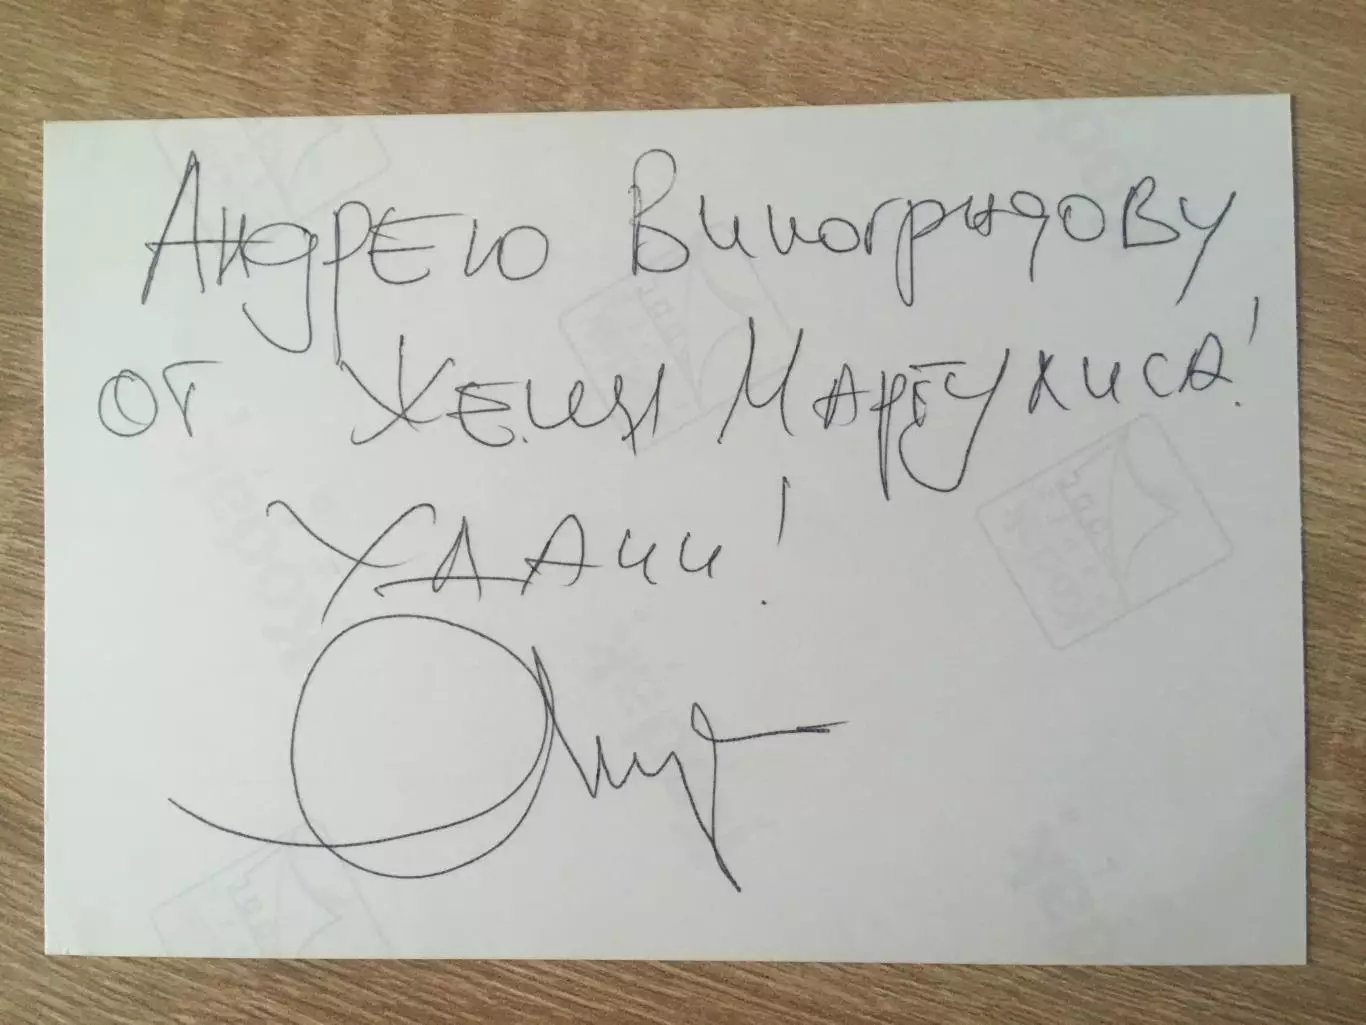 Андрею Виноградову
от Жени Маргулиса!
Удачи!